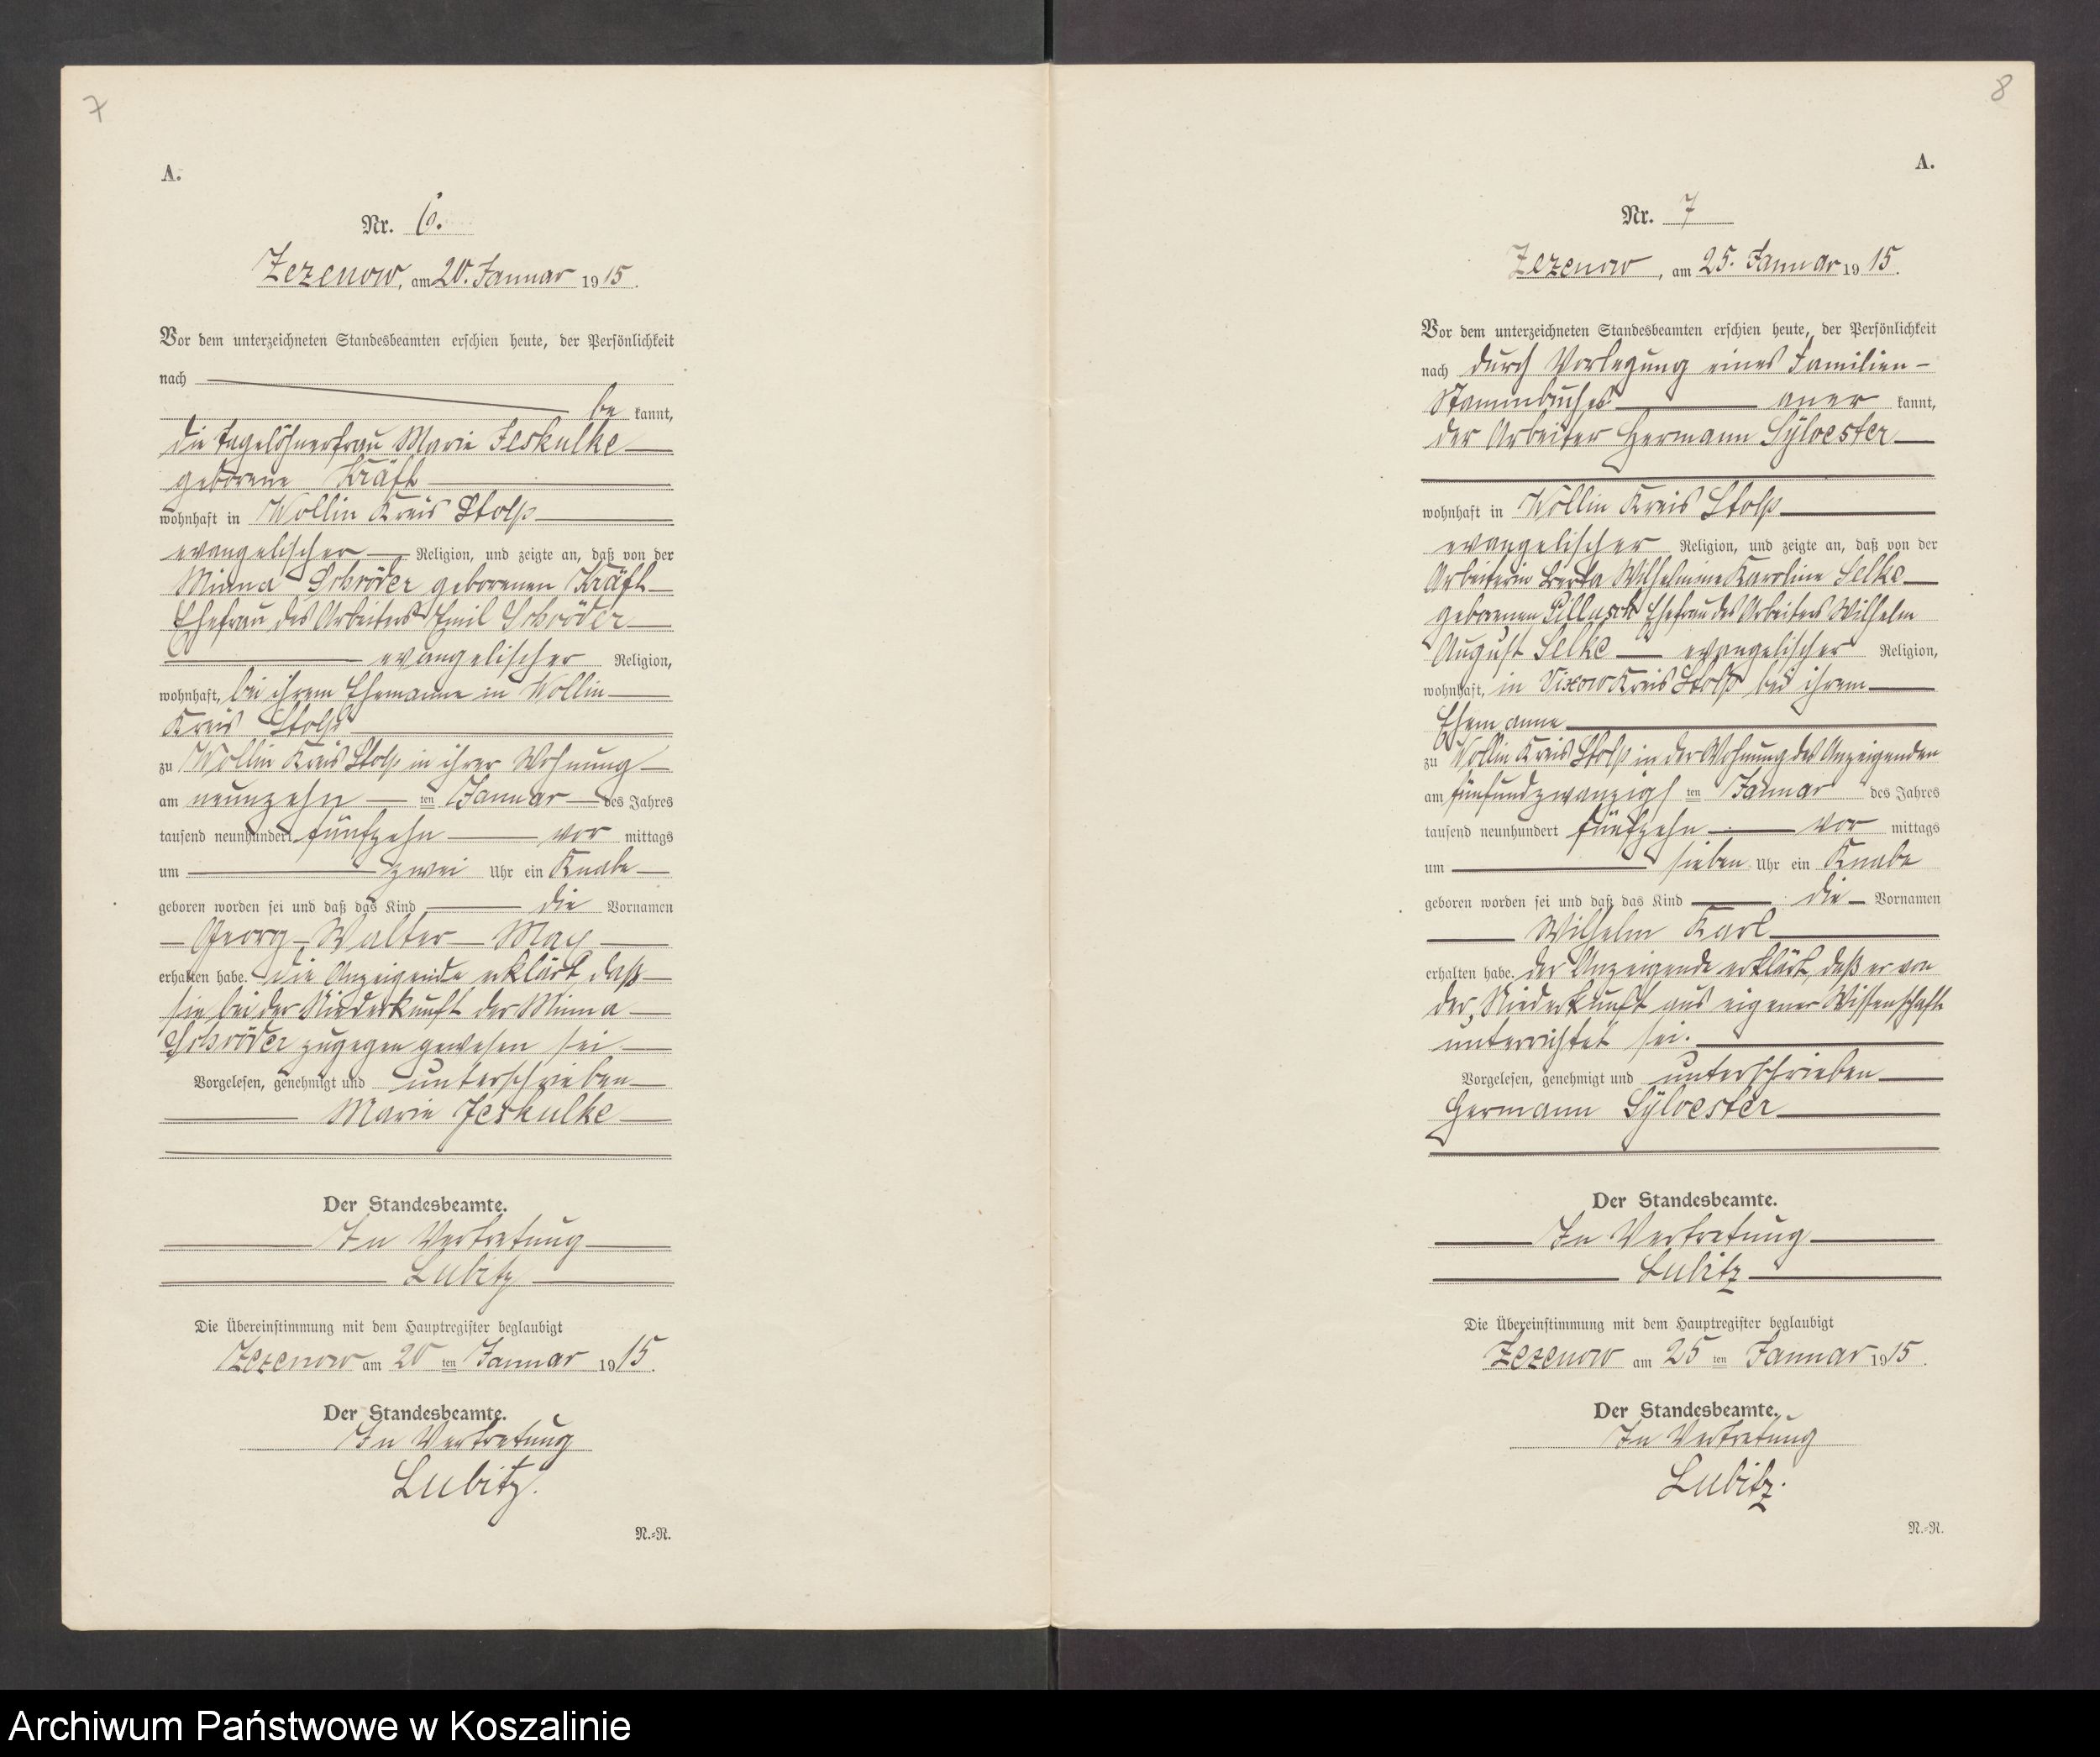 7
A.
Nr. 6.
Zezenow, am 20. Januar 1915.
Vor dem unterzeichneten Standesbeamten erschien heute, der Persönlichkeit
nach
be kannt,
die Tagelöhnerfrau Marie Jeskulke
geborene Kräft
wohnhaft in Wollin Kreis Stolp
evangelischer Religion, und zeigte an, daß von der
Minna Schröder geborenen Kräft
Ehefrau des Arbeiters Emil Schröder
evangelischer Religion,
wohnhaft, bei ihrem Ehemanne in Wollin
Kreis Stolp
zu Wollin Kreis Stolp in ihrer Wohnung
am neunzehn ten Januar des Jahres
tausend neunhundert fünfzehn vor mittags
um zwei Uhr ein Knabe
geboren worden sei und daß das Kind die Vornamen
Georg Walter Max
erhalten habe. Die Anzeigende erklärt, daß
sie bei der Niederkunft der Minna
Schröder zugegen gewesen sei
Vorgelesen, genehmigt und unterschrieben
Marie Jeskulke
Der Standesbeamte.
In Vertretung
Lubitz
Die Übereinstimmung mit dem Hauptregister beglaubigt
Zezenow am 20 ten Januar 1915.
Der Standesbeamte.
In Vertretung
Lubitz.
N.-R.
8
A.
Nr. 7
Zezenow, am 25. Januar 1915.
Vor dem unterzeichneten Standesbeamten erschien heute, der Persönlichkeit
nach durch Vorlegung eines Familien-
Stammbuches aner kannt,
der Arbeiter Hermann Sylvester
wohnhaft in Wollin Kreis Stolp
evangelischer Religion, und zeigte an, daß von der
Arbeiterin Berta Wilhelmine Karoline Selke
geborenen Ehefrau des Arbeiters Wilhelm
August Selke evangelischer Religion,
wohnhaft, in Vixow Kreis Stolp bei ihrem
Ehemanne
zu Wollin Kreis Stolp in der Wohnung des Anzeigenden
am fünfundzwanzigs ten Januar des Jahres
tausend neunhundert fünfzehn vor mittags
um sieben Uhr ein Knabe
geboren worden sei und daß das Kind die Vornamen
Wilhelm Karl
erhalten habe. Der Anzeigende erklärt, daß er von
der Niederkunft aus eigener Wissenschaft
unterrichtet sei.
Vorgelesen, genehmigt und unterschrieben
Hermann Sylvester
Der Standesbeamte.
In Vertretung
Lubitz
Die Übereinstimmung mit dem Hauptregister beglaubigt
Zezenow am 25 ten Januar 1915.
Der Standesbeamte.
In Vertretung
Lubitz.
N.-R.
Archiwum Państwowe w Koszalinie